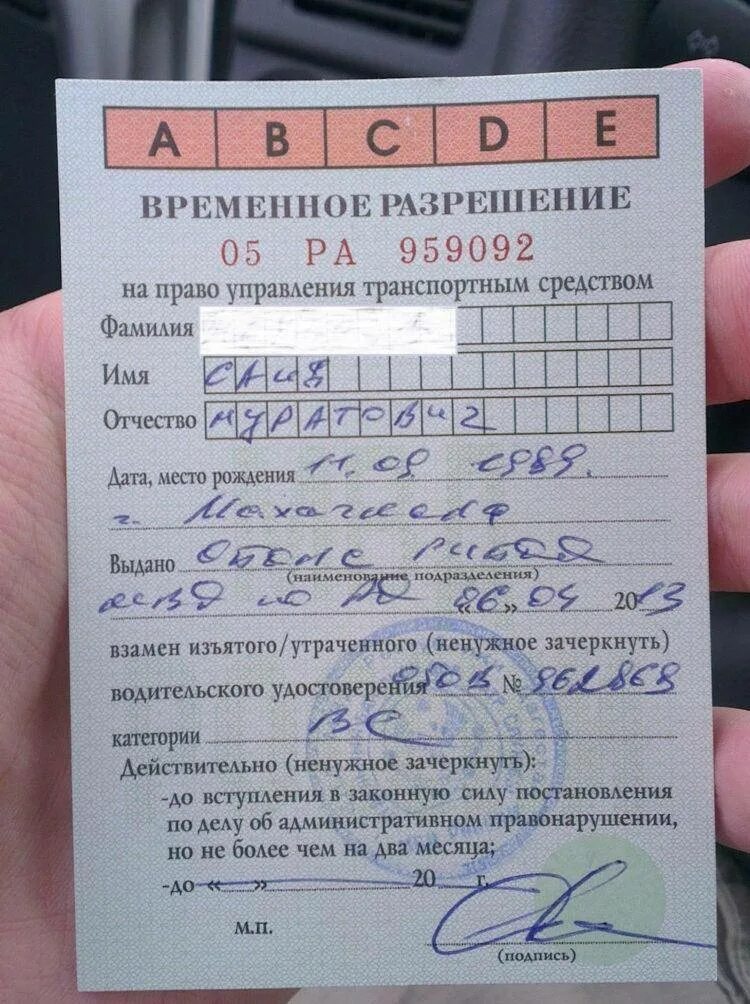 A B C D E
ВРЕМЕННОЕ РАЗРЕШЕНИЕ
05 РА 959092
на право управления транспортным средством
Фамилия
Имя САИД
Отчество МУРАТОВИЧ
Дата, место рождения 11.09 1989.
г. Махачкала
Выдано
(наименование подразделения)
МВД по РД «26» 04 2013
взамен изъятого/утраченного (ненужное зачеркнуть)
водительского удостоверения 05 ОВ № 962869
категории ВС
Действительно (ненужное зачеркнуть):
-до вступления в законную силу постановления
по делу об административном правонарушении,
но не более чем на два месяца;
-до «___»____________20___г.
М.П.
(подпись)